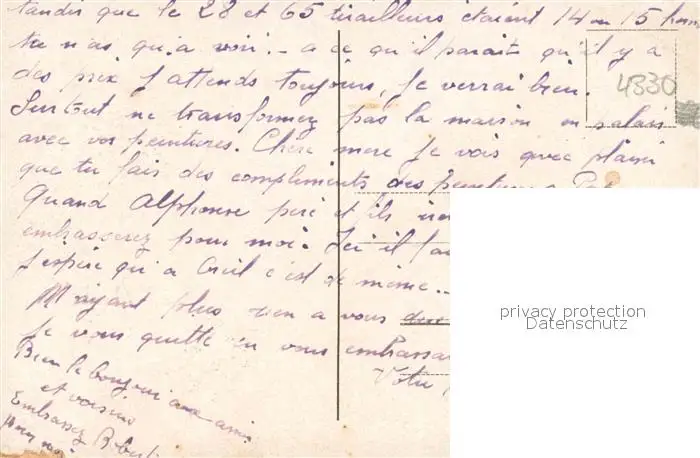 tandis que le 28 et 65 tirailleurs étaient 14 ou 15
tu n'as qu'a voir. - a ce qu'il parait qu'il y a
des prix j'attends toujours, je verrai bien.
4330
Surtout ne transformez pas la maison en palais
avec vos peintures. Chère mere je vois avec plaisir
que tu fais des compliments des
Quand Alphonse
embrasserez pour moi. Ici il
J'espère qu'a Creil c'est de même. -
N'ayant plus rien a vous
je vous quitte en vous
Bien le bonjour aux amis
et voisins
Embrassez
pour moi
privacy protection
Datenschutz